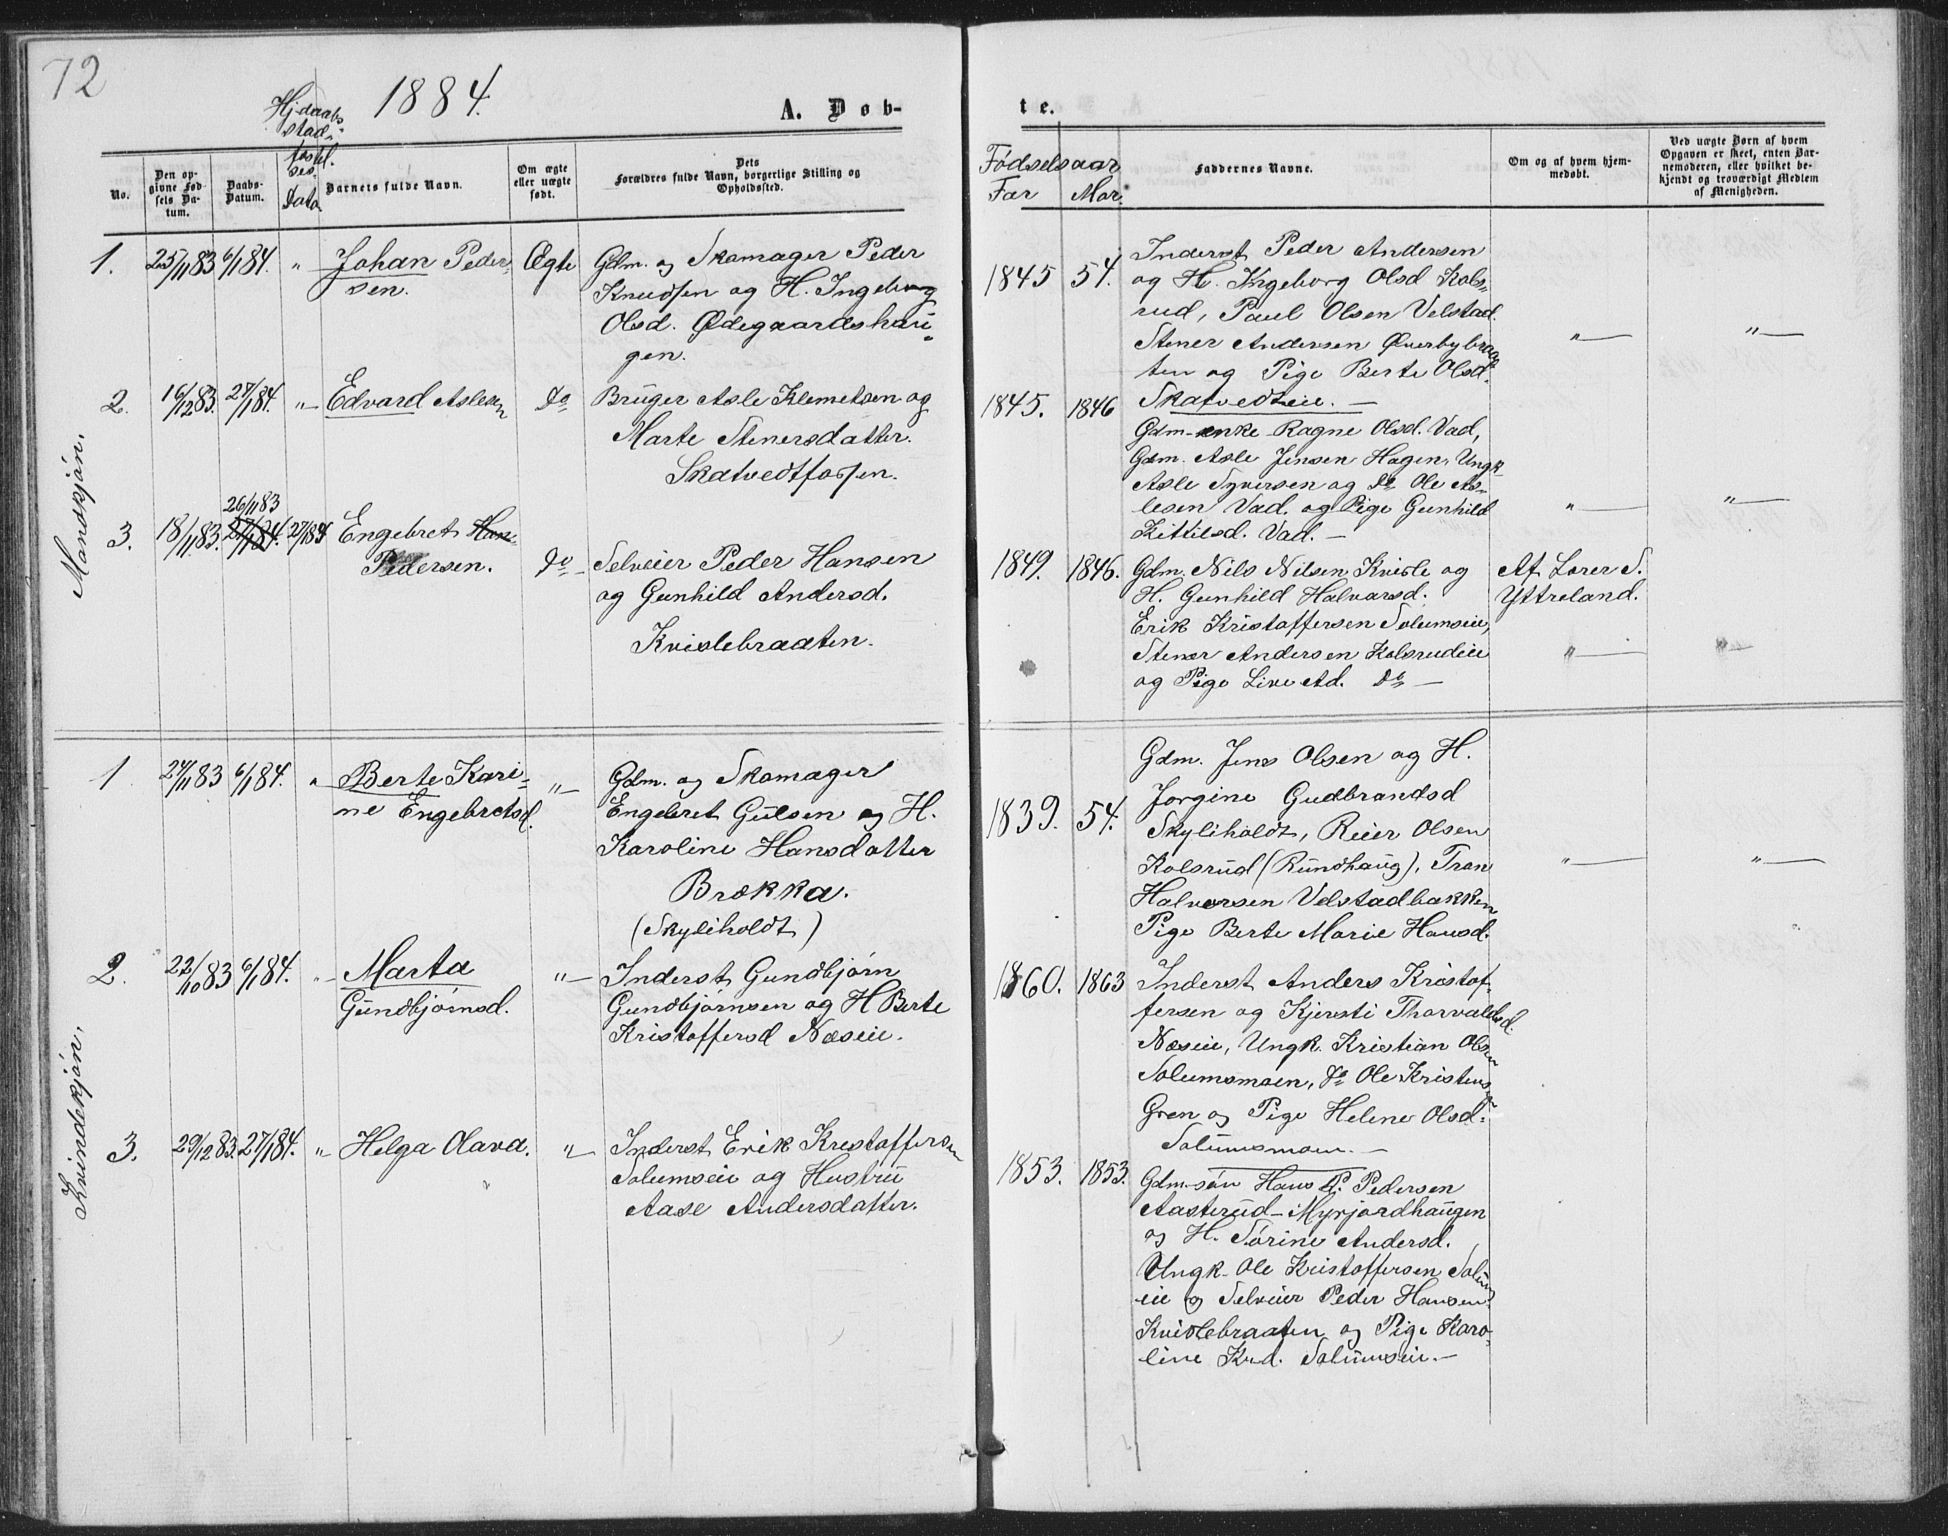 72
1884.
A. Døb-
te.
Hjdaabs
stad-
fæstel.
ses.
Dato
No.
Den op-
givne Fød-
sels Da-
tum.
Daabs-
Datum.
Barnets fulde Navn.
Om ægte
eller uægte
født.
Dets
Forældres fulde Navn, borgerlige Stilling og
Opholdssted.
Fødselsaar
Far Mor.
Faddernes Navne.
Om og af hvem hjem-
medøbt.
Ved uægte Børn af hvem
Opgaven er skeet, enten Bar-
nemoderen, eller hvilket be-
kjendt og troværdigt Medlem
af Menigheden.
Mandkjøn.
1. 25/11 83 6/1 84. " Johan Peder-
sen.
Ægte
Gdm. og Skomager Peder
Knudsen og H. Ingeborg
Olsd. Ødegaardshau-
gen.
1845 54.
Inderst Peder Andersen
og H. Ingeborg Olsd Kols-
rud, Paul Olsen Velstad.
Stener Andersen Øverbybraa-
ten og Pige Berte Olsd.
Skatvedteie. —
"— "—
2. 16/12 83. 27/1 84. "— Edvard Aslesen
Do
Bruger Asle Klemetsen og
Marte Stenersdatter.
Skatvedtfossen.
1845. 1846
Gdm-enke Ragne Olsd. Vad,
Gdm. Asle Jensen Hagen, Ungk-
Asle Syversen og Do Ole As-
lesen Vad. og Pige Gunhild
Kittilsd. Vad. —
"— "—
3. 18/11 83. 26/11 83
27/1 84. 27/1 84 Engebret Han-
Pedersen.
Do
Selveier Peder Hansen
og Gunhild Andersd.
Kvislebraaten.
1849. 1846.
Gdm. Nils Nilsen Kvisle og
H. Gunhild Halvorsd.
Erik Kristoffersen Solumseie,
Stener Andersen Kolsrudeie
og Pige Live Ad. Do —
Af Lærer S.
Yttreland.
"— "—
Kvindekjøn.
1. 24/11 83 6/1 84. " Berte Kari-
ne Engebretsd.
"—
Gdm. og Skomager
Engebret Gulsen og H.
Karoline Hansdatter
Brækka.
(Skyliholdt)
1839. 54.
Gdm. Jens Olsen og H.
Jorgine Gudbrandsd
Skyliholdt, Reier Olsen
Kolsrud (Rundhaug), Tran
Halvorsen Velstadbakken
Pige Berte Marie Hansd.
"— "—
2. 22/10 83 6/1 84. "— Marta
Gundbjørnsd.
"—
Inderst Gundbjørn
Gundbjørnsen og H Berte
Kristoffersd Næseie.
1860. 1863
Inderst Anders Kristof-
fersen og Kjersti Thorvaldsd.
Næseie, Ungk. Kristian Olsen
Solumsmoen, Do Ole Kristensen
Gren og Pige Helene Olsd.
Solumsmoen. —
3. 29/12 83. 27/1 84. " Helga Olava.
"—
Inderst Erik Kristoffersen
Solumseie og Hustru
Aase Andersdatter.
1853. 1853.
Gdm-søn Hans P. Pedersen
Aasterud-Myrjordhaugen
og H. Sørine Andersd.
Ungk. Ole Kristoffersen Solums
eie og Selveier Peder Hansen
Kvislebraaten og Pige Karo-
line Krd. Solumseie. —